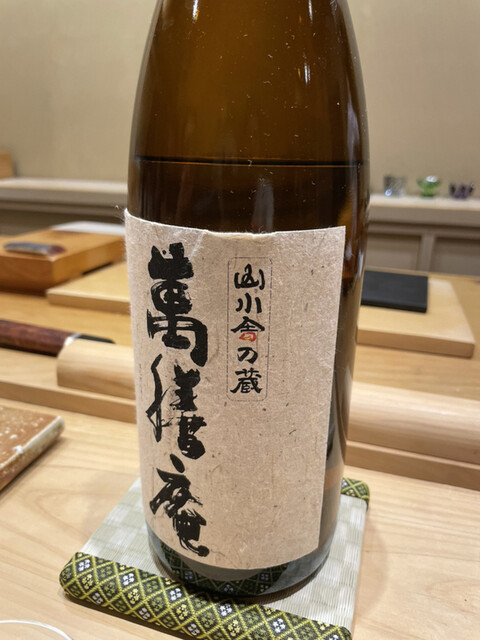 山小舎の蔵
萬膳庵